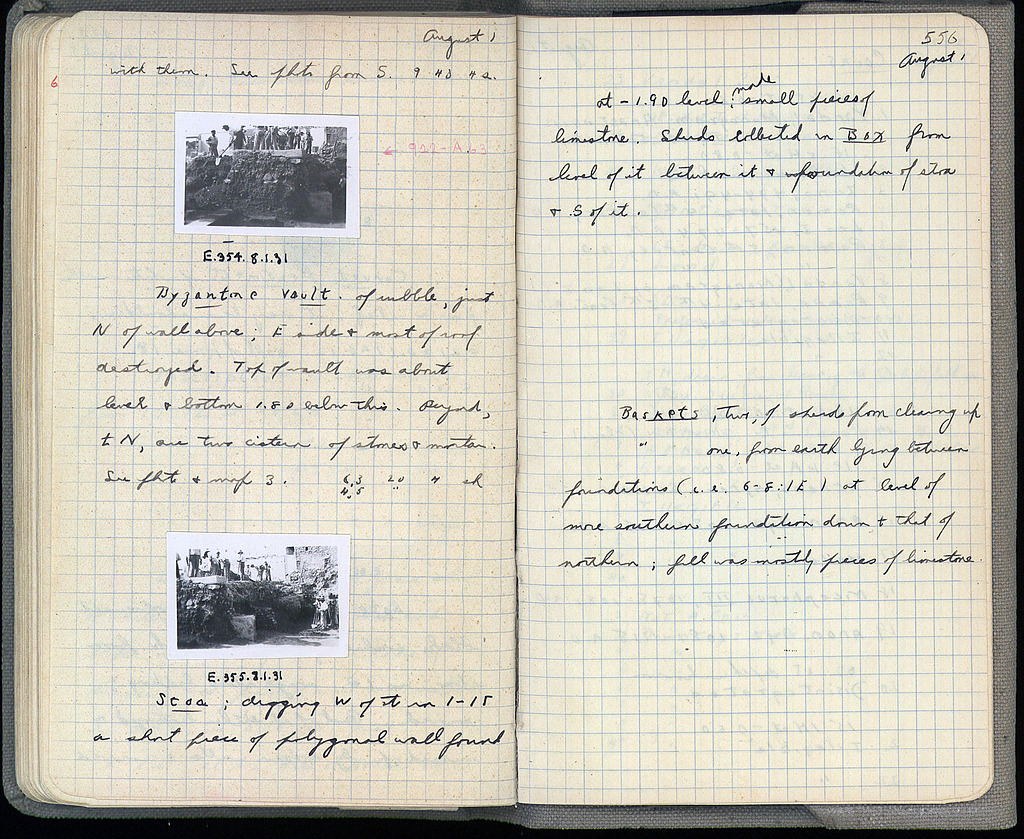 August 1
with them. See photo from S. 9 40 4 s.
6
← 922-A63
E.354.8.1.31
Byzantine Vault. of rubble, just
N of wall above; E side & most of roof
destroyed. Top of vault was about
level & bottom 1.80 below this. Beyond,
to N, are two cistern of stones & mortar.
See photo & map 3. 6.3 20 4 sh
4.5 "
E.355.8.1.31
Stoa; digging W of it in 1-15
a short piece of polygonal wall found
556
August 1
at -1.90 level; made small pieces of
limestone. Sherds collected in Box from
level of it between it & foundation of stoa
& S of it.
Baskets, Two, of sherds from clearing up
" one, from earth lying between
foundations (i.e. 6-8:1E) at level of
more southern foundation down to that of
northern; fill was mostly pieces of limestone.